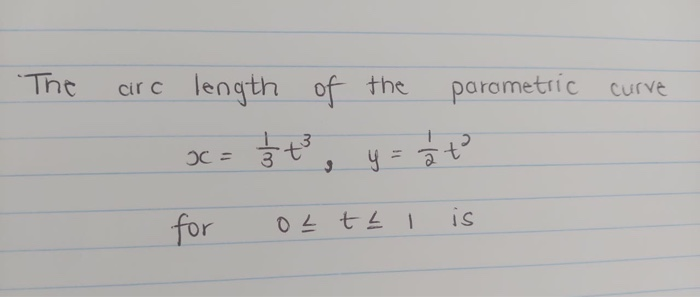 The arc length of the parametric curve
x = 1/3 t³, y = 1/2 t²
for 0 ≤ t ≤ 1 is